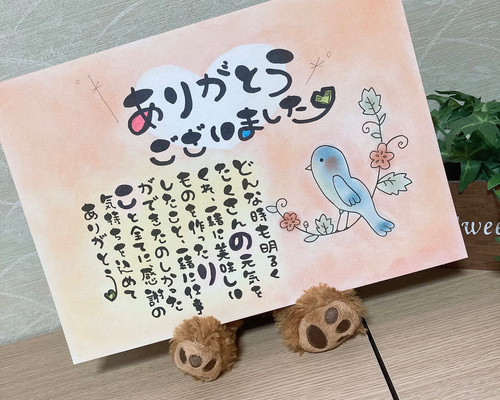 ありがとう
ございました
どんな時も明るく
たくさんの元気を
くれ、一緒に美味しい
ものを作ったり
したこと、一緒に仕事
ができたのしかった
こと全てに、感謝の
気持ちを込めて
ありがとう